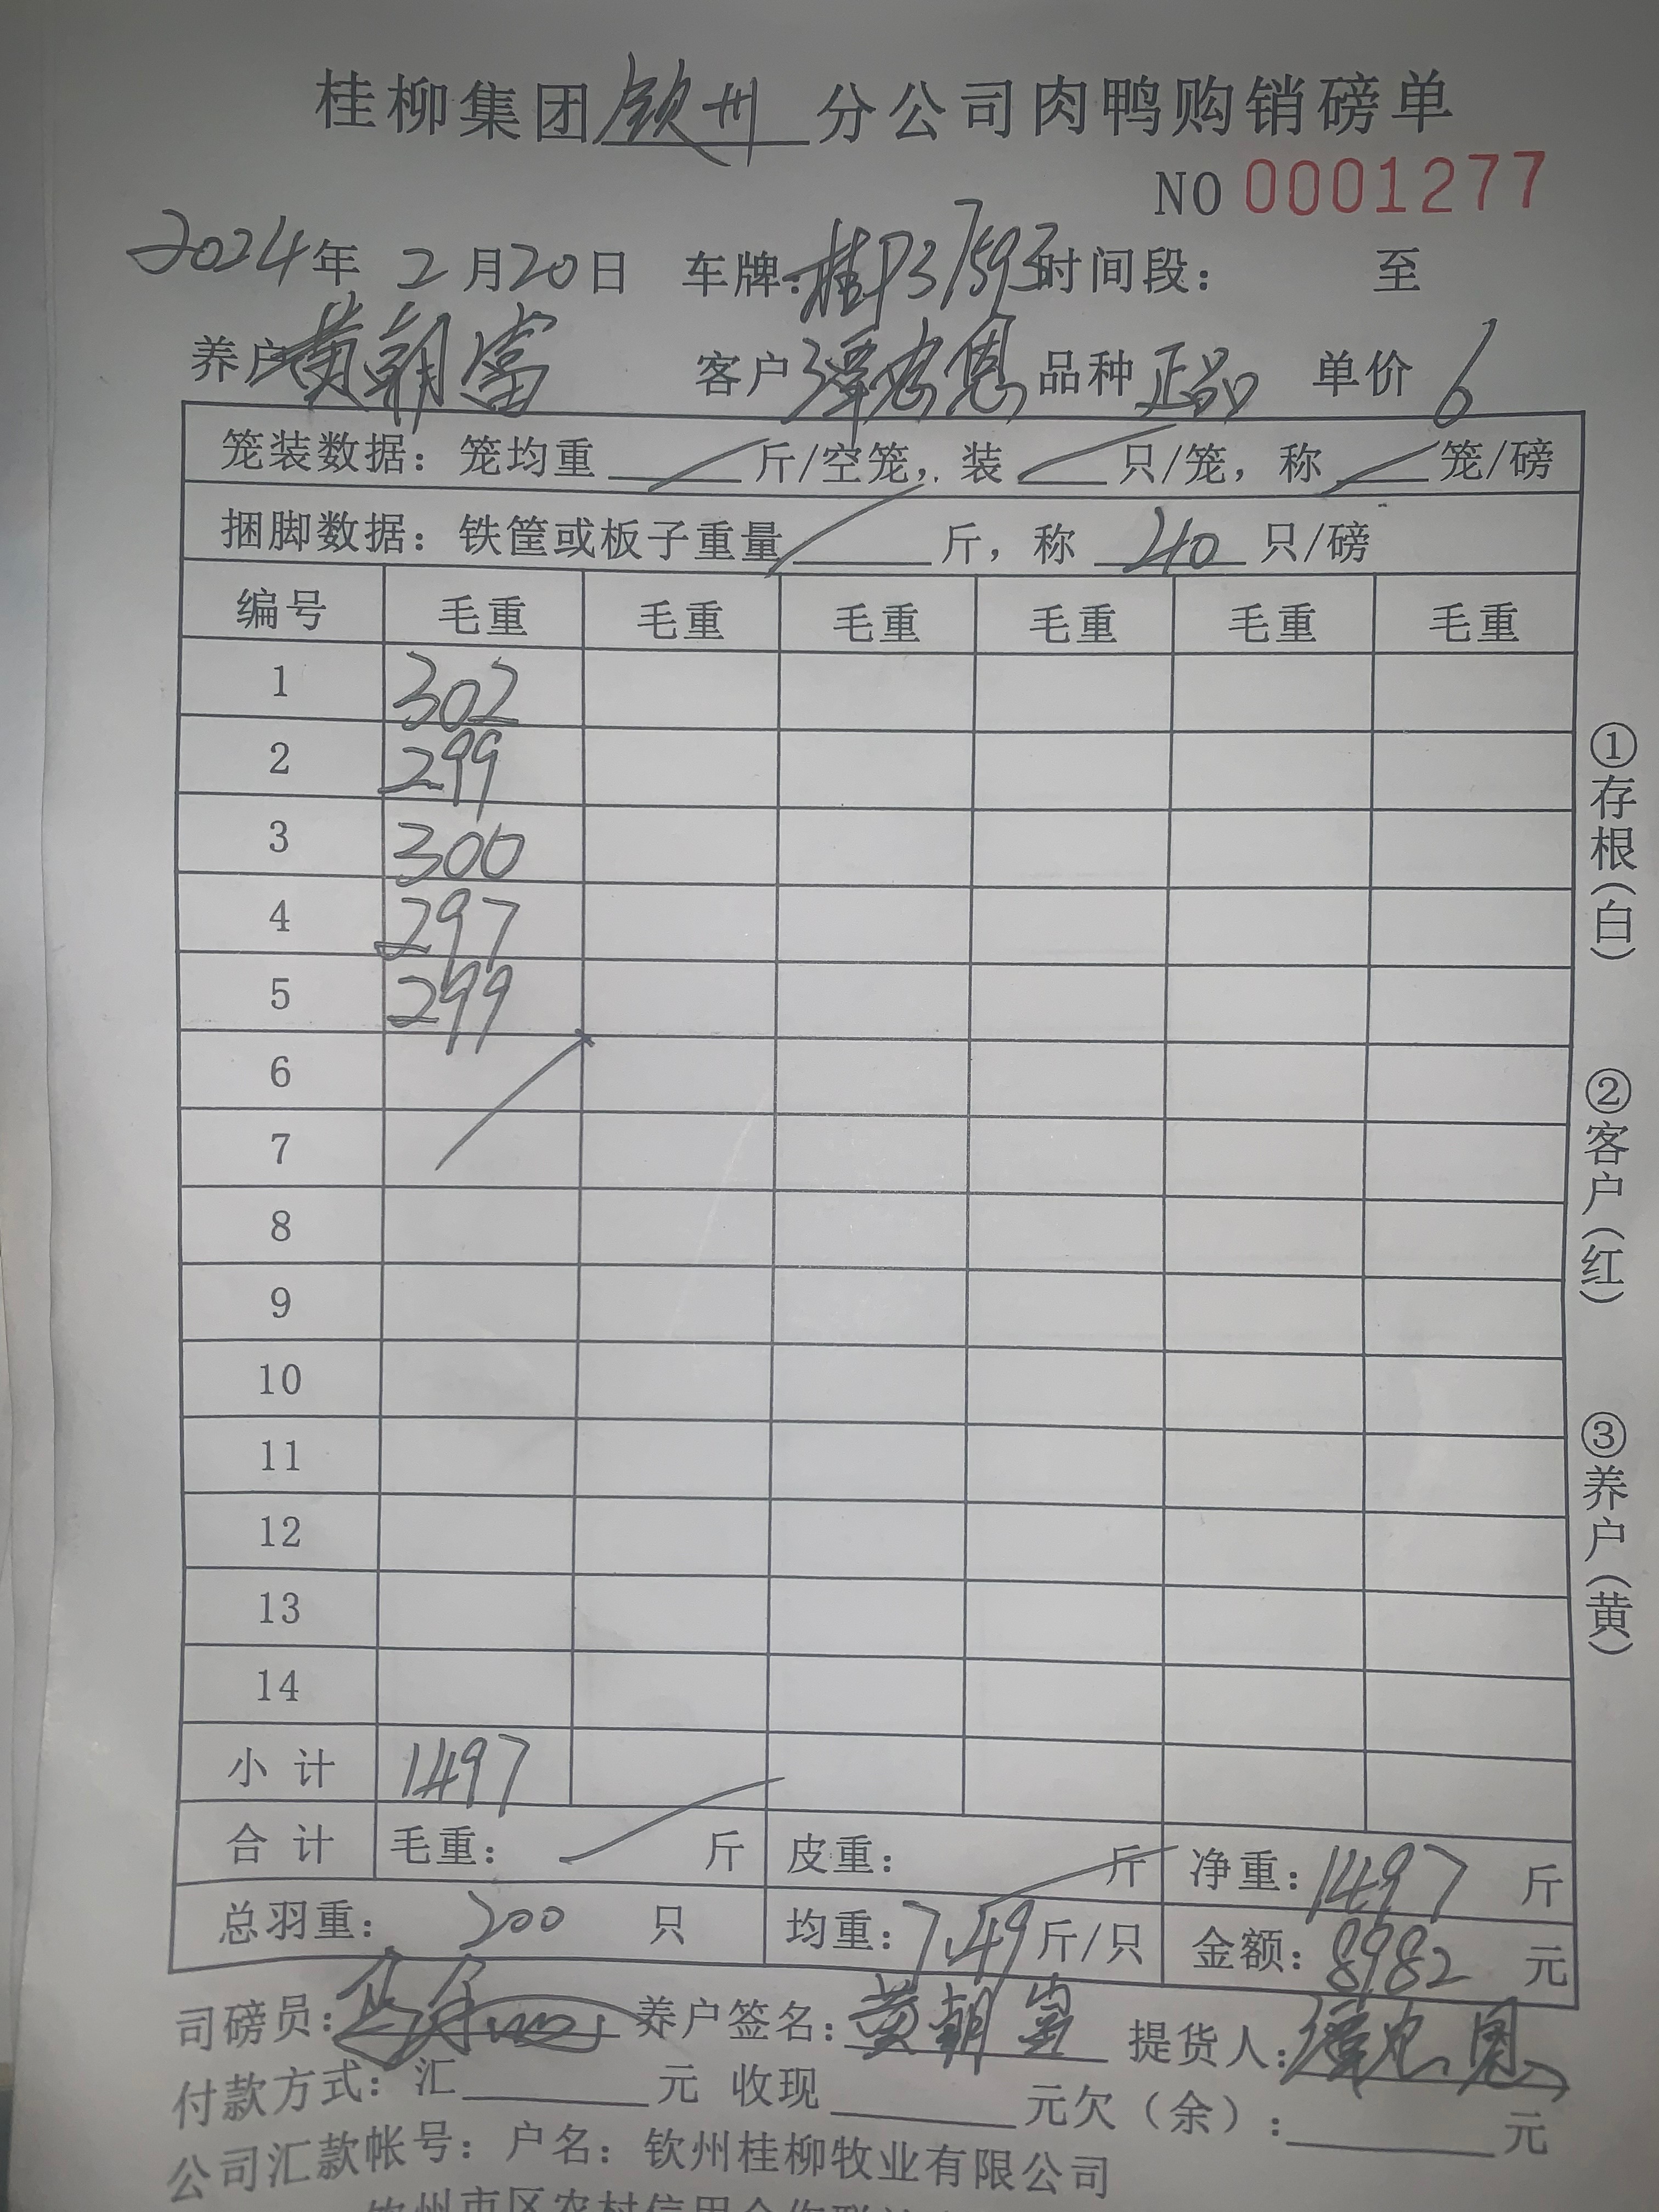 桂柳集团钦州分公司肉鸭购销磅单
NO 0001277
2024年 2月20日 车牌:桂P37593时间段: 至
养户黄朝富 客户谭忠恩 品种正品 单价6
笼装数据: 笼均重 斤/空笼, 装 只/笼, 称 笼/磅
捆脚数据: 铁筐或板子重量 斤, 称 40 只/磅
编号 毛重 毛重 毛重 毛重 毛重 毛重
1 302
2 299
3 300
4 297
5 299
6
7
8
9
10
11
12
13
14
小计 1497
合计 毛重: 斤 皮重: 斤 净重: 1497 斤
总羽重: 200 只 均重: 7.49 斤/只 金额: 8982 元
司磅员: 养户签名: 黄朝富 提货人: 谭忠恩
付款方式: 汇 元 收现 元欠(余): 元
公司汇款帐号: 户名: 钦州桂柳牧业有限公司
钦州市区农村信用合作联社
①存根(白)
②客户(红)
③养户(黄)